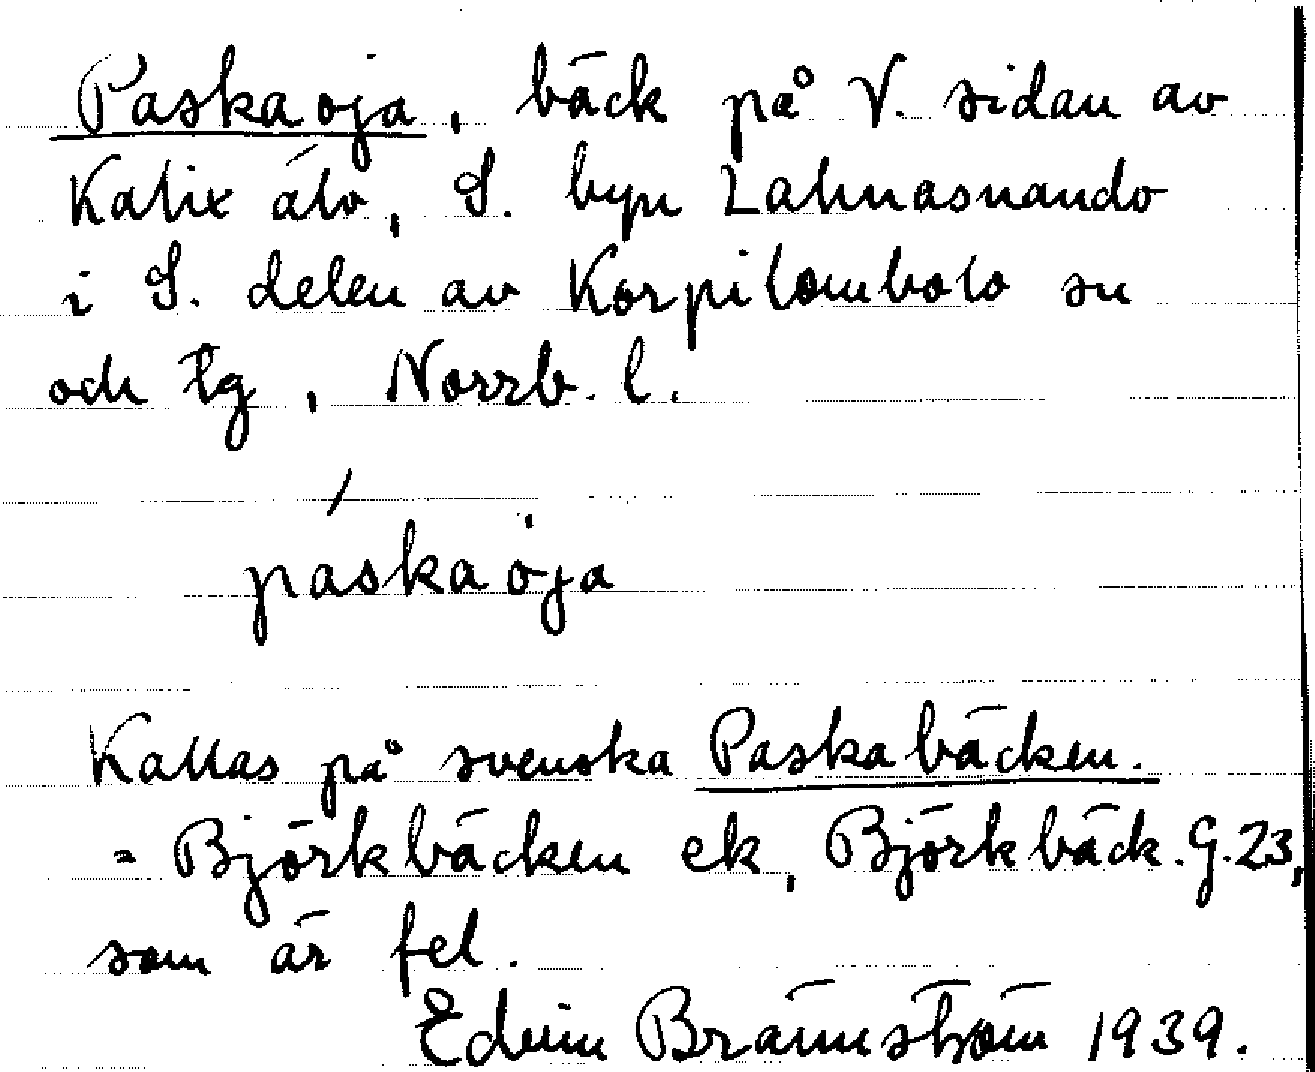 Paskaoja, bäck på V. sidan av
Kalix älv, S. byn Lahnasuando
i S. delen av Korpilombolo sn
och tg, Norrb. l.
páskaȯja
Kallas på svenska Paskabäcken.
= Björkbäcken ek, Björkbäck. G. 23,
som är fel.
Edvin Brännström 1939.